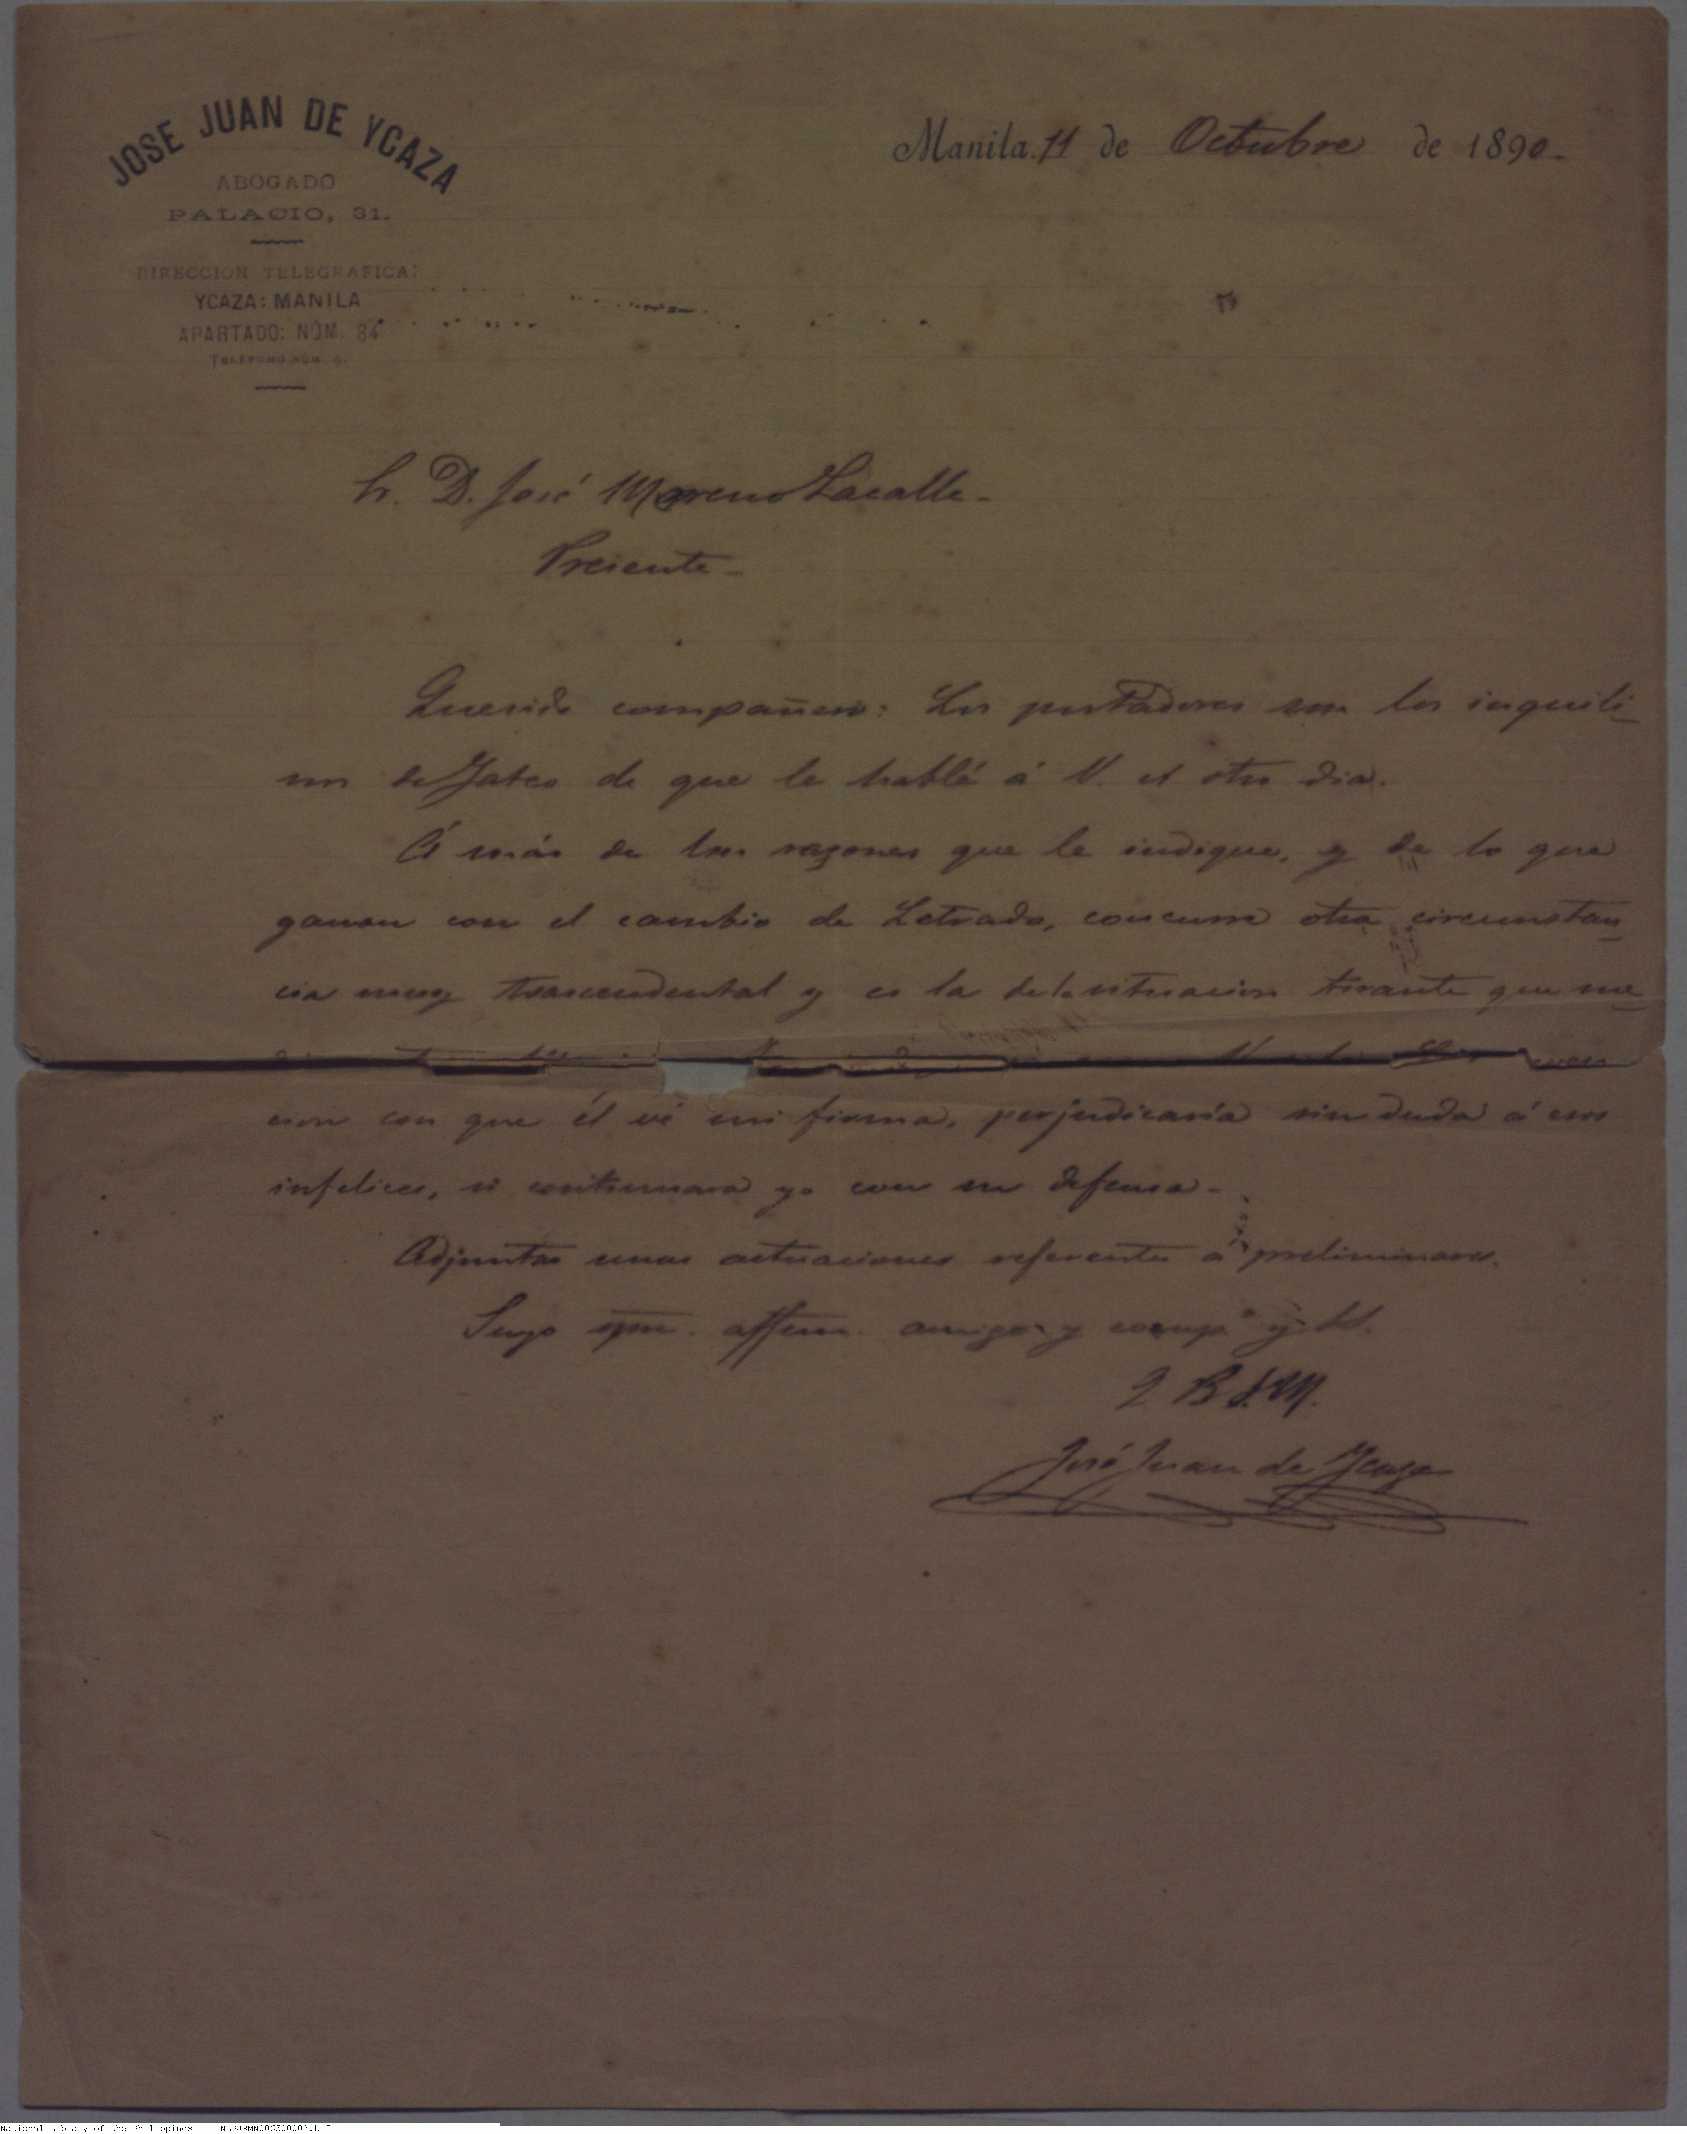 JOSE JUAN DE YCAZA
ABOGADO
PALACIO, 31.
DIRECCION TELEGRAFICA:
YCAZA: MANILA
APARTADO: NÚM. 84
TELÉFONO NÚM.
Manila 11 de Octubre de 1890.
Sr. D. José Moreno Lacalle-
Presente-
Querido compañero: Los portadores son los inquili-
nos de Jateo de que le hablé á V. el otro dia.
Á más de las razones que le indique, y de lo que
ganan con el cambio de Letrado, concurre otra circunstan-
cia muy trascendental y es la de la situacion tirante que me
cion con que él vé mi firma, perjudicaría sin duda á esos
infelices, si continuara yo con su defensa-
Adjuntas unas actuaciones referentes á preliminares.
Suyo spre. affmo. amigo y comp.º y S.
Q B S.M.
José Juan de Ycaza
National Library of the Philippines